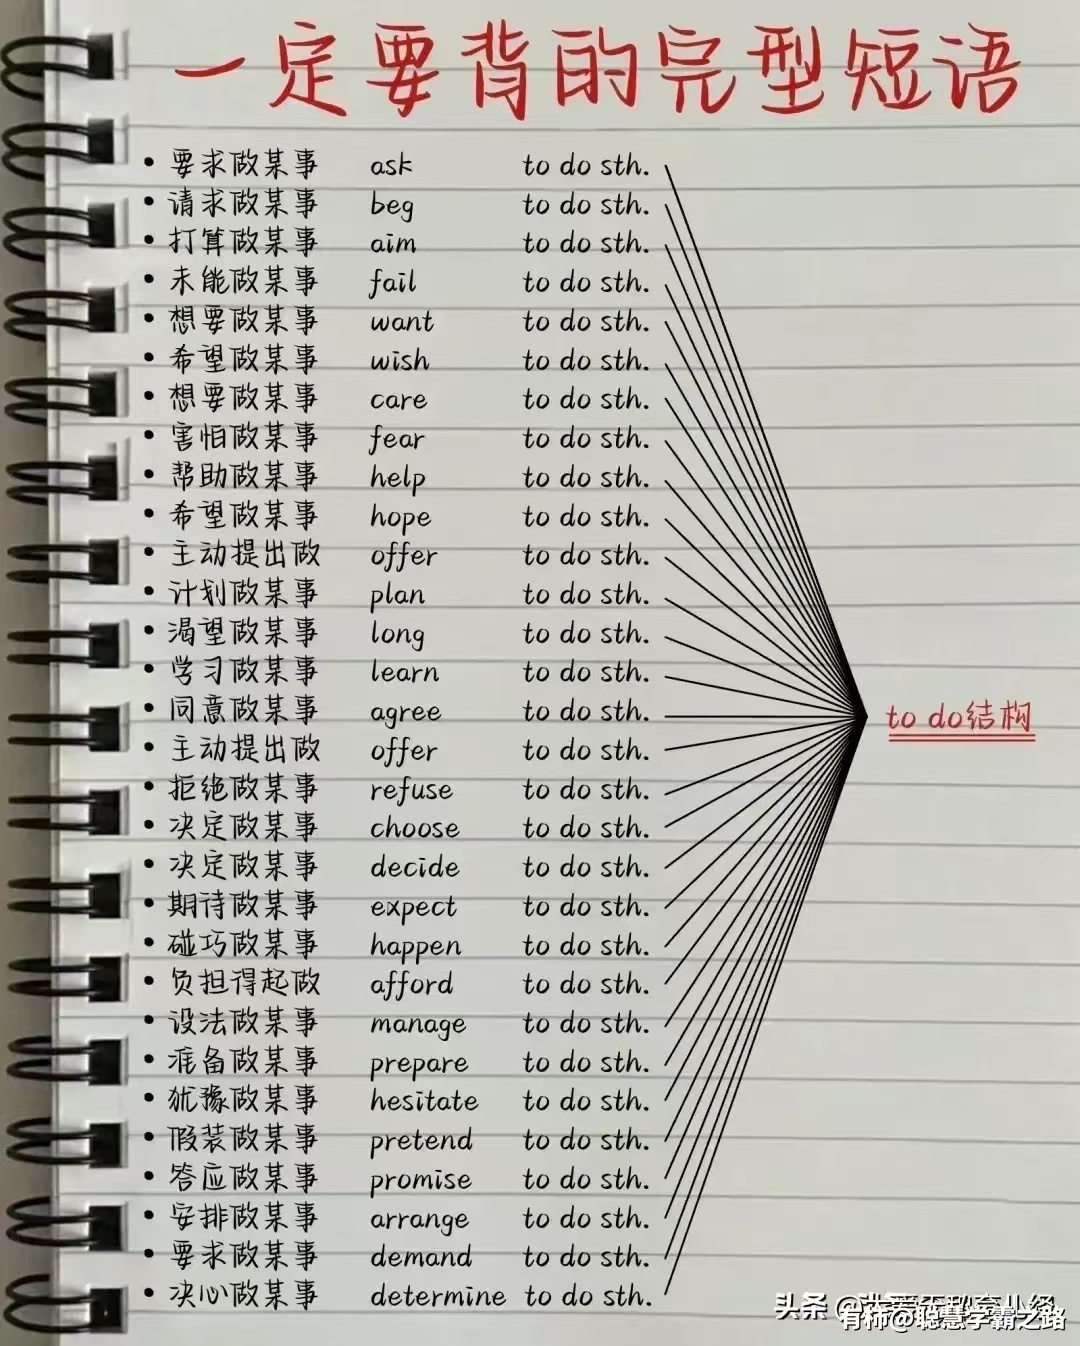 一定要背的完型短语
• 要求做某事 ask to do sth.
• 请求做某事 beg to do sth.
• 打算做某事 aim to do sth.
• 未能做某事 fail to do sth.
• 想要做某事 want to do sth.
• 希望做某事 wish to do sth.
• 想要做某事 care to do sth.
• 害怕做某事 fear to do sth.
• 帮助做某事 help to do sth.
• 希望做某事 hope to do sth.
• 主动提出做 offer to do sth.
• 计划做某事 plan to do sth.
• 渴望做某事 long to do sth.
• 学习做某事 learn to do sth.
• 同意做某事 agree to do sth.
to do结构
• 主动提出做 offer to do sth.
• 拒绝做某事 refuse to do sth.
• 决定做某事 choose to do sth.
• 决定做某事 decide to do sth.
• 期待做某事 expect to do sth.
• 碰巧做某事 happen to do sth.
• 负担得起做 afford to do sth.
• 设法做某事 manage to do sth.
• 准备做某事 prepare to do sth.
• 犹豫做某事 hesitate to do sth.
• 假装做某事 pretend to do sth.
• 答应做某事 promise to do sth.
• 安排做某事 arrange to do sth.
• 要求做某事 demand to do sth.
• 决心做某事 determine to do sth.
头条
有柿@聪慧学霸之路